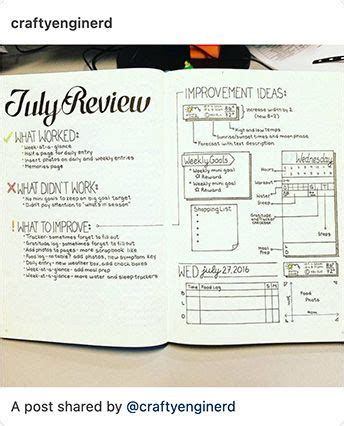 craftyenginerd
July Review
WHAT WORKED:
- Week-at-a-glance
- Half a page for daily entry
- Insert photos on daily and weekly entries
- Memories page
WHAT DIDN'T WORK:
- No mini goals to keep on big goal target
- Didn't pay attention to "what's in season"
WHAT TO IMPROVE:
- Tracker - sometimes forget to fill out
- Gratitude log - sometimes forget to fill out
- Add photos to pages - more scrapbook like
- Food log - no table? add photos, new symptom key
- Daily entry - new weather box, add check boxes
- Week-at-a-glance - add meal prep
- Week-at-a-glance - more water and sleep trackers
IMPROVEMENT IDEAS:
Increase width by 2
(now 8×2)
High and low temps
Sunrise/sunset times and moon phase
Forecast with text description
Weekly Goals
Weekly mini goal
Reward
Weekly mini goal
Reward
Shopping List
Wednesday
Hours
Workout
Water
Sleep
Gratitude
and tracker
checkbox
Meal
Prep
WED July 27, 2016
Time Food Log S M
B
L
D
Food
Photo
A post shared by @craftyenginerd